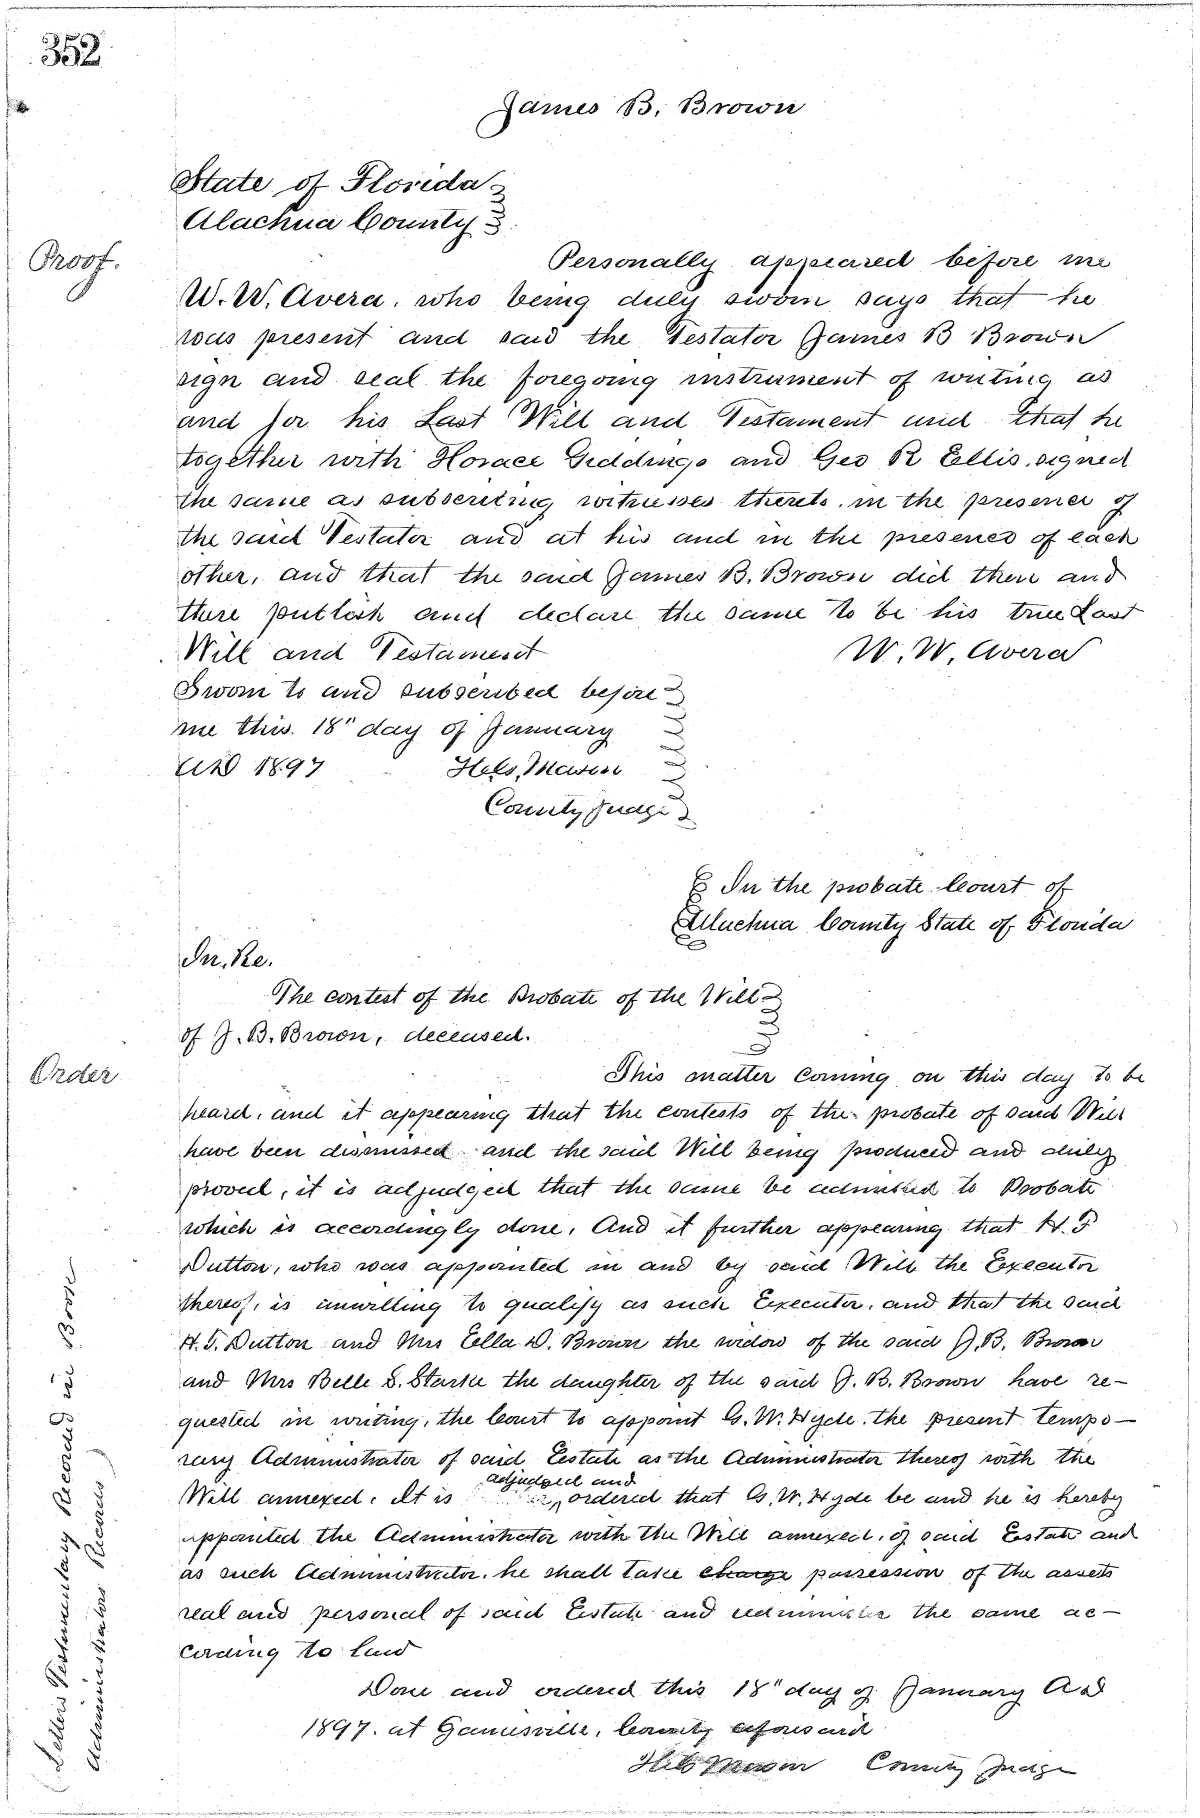 352
James B. Brown
State of Florida
Alachua County
Proof.
Personally appeared before me
W. W. Avera, who being duly sworn says that he
was present and said the Testator James B Brown
sign and seal the foregoing instrument of writing as
and for his Last Will and Testament and that he
together with Horace Giddings and Geo R Ellis, signed
the same as subscribing witnesses thereto in the presence of
the said Testator and at his and in the presence of each
other, and that the said James B. Brown did then and
there publish and declare the same to be his true Last
Will and Testament
W. W. Avera
Sworn to and subscribed before
me this 18" day of January
AD 1897 Mason
County Judge
In the probate Court of
Alachua County State of Florida
In. Re.
The contest of the Probate of the Will
of J. B. Brown, deceased.
Order
This matter coming on this day to be
heard, and it appearing that the contests of the probate of said Will
have been dismissed and the said Will being produced and duly
proved, it is adjudged that the same be admitted to Probate
which is accordingly done. And it further appearing that H. F.
Dutton, who was appointed in and by said Will the Executor
thereof, is unwilling to qualify as such Executor, and that the said
H. F. Dutton and Mrs Ella D. Brown the widow of the said J. B. Brown
and Mrs Belle S. Starke the daughter of the said J. B. Brown have re-
quested in writing, the Court to appoint G. W. Hyde the present tempo-
rary Administrator of said Estate as the Administrator thereof with the
adjudged and
Will annexed. It is ordered that G. W. Hyde be and he is hereby
appointed the Administrator with the Will annexed, of said Estate and
as such Administrator, he shall take charge possession of the assets
real and personal of said Estate and administer the same ac-
cording to law
Done and ordered this 18" day of January AD
1897. at Gainesville, County aforesaid
Mason County Judge
(Letters Testamentary Recorded in Book
Administrators Records)